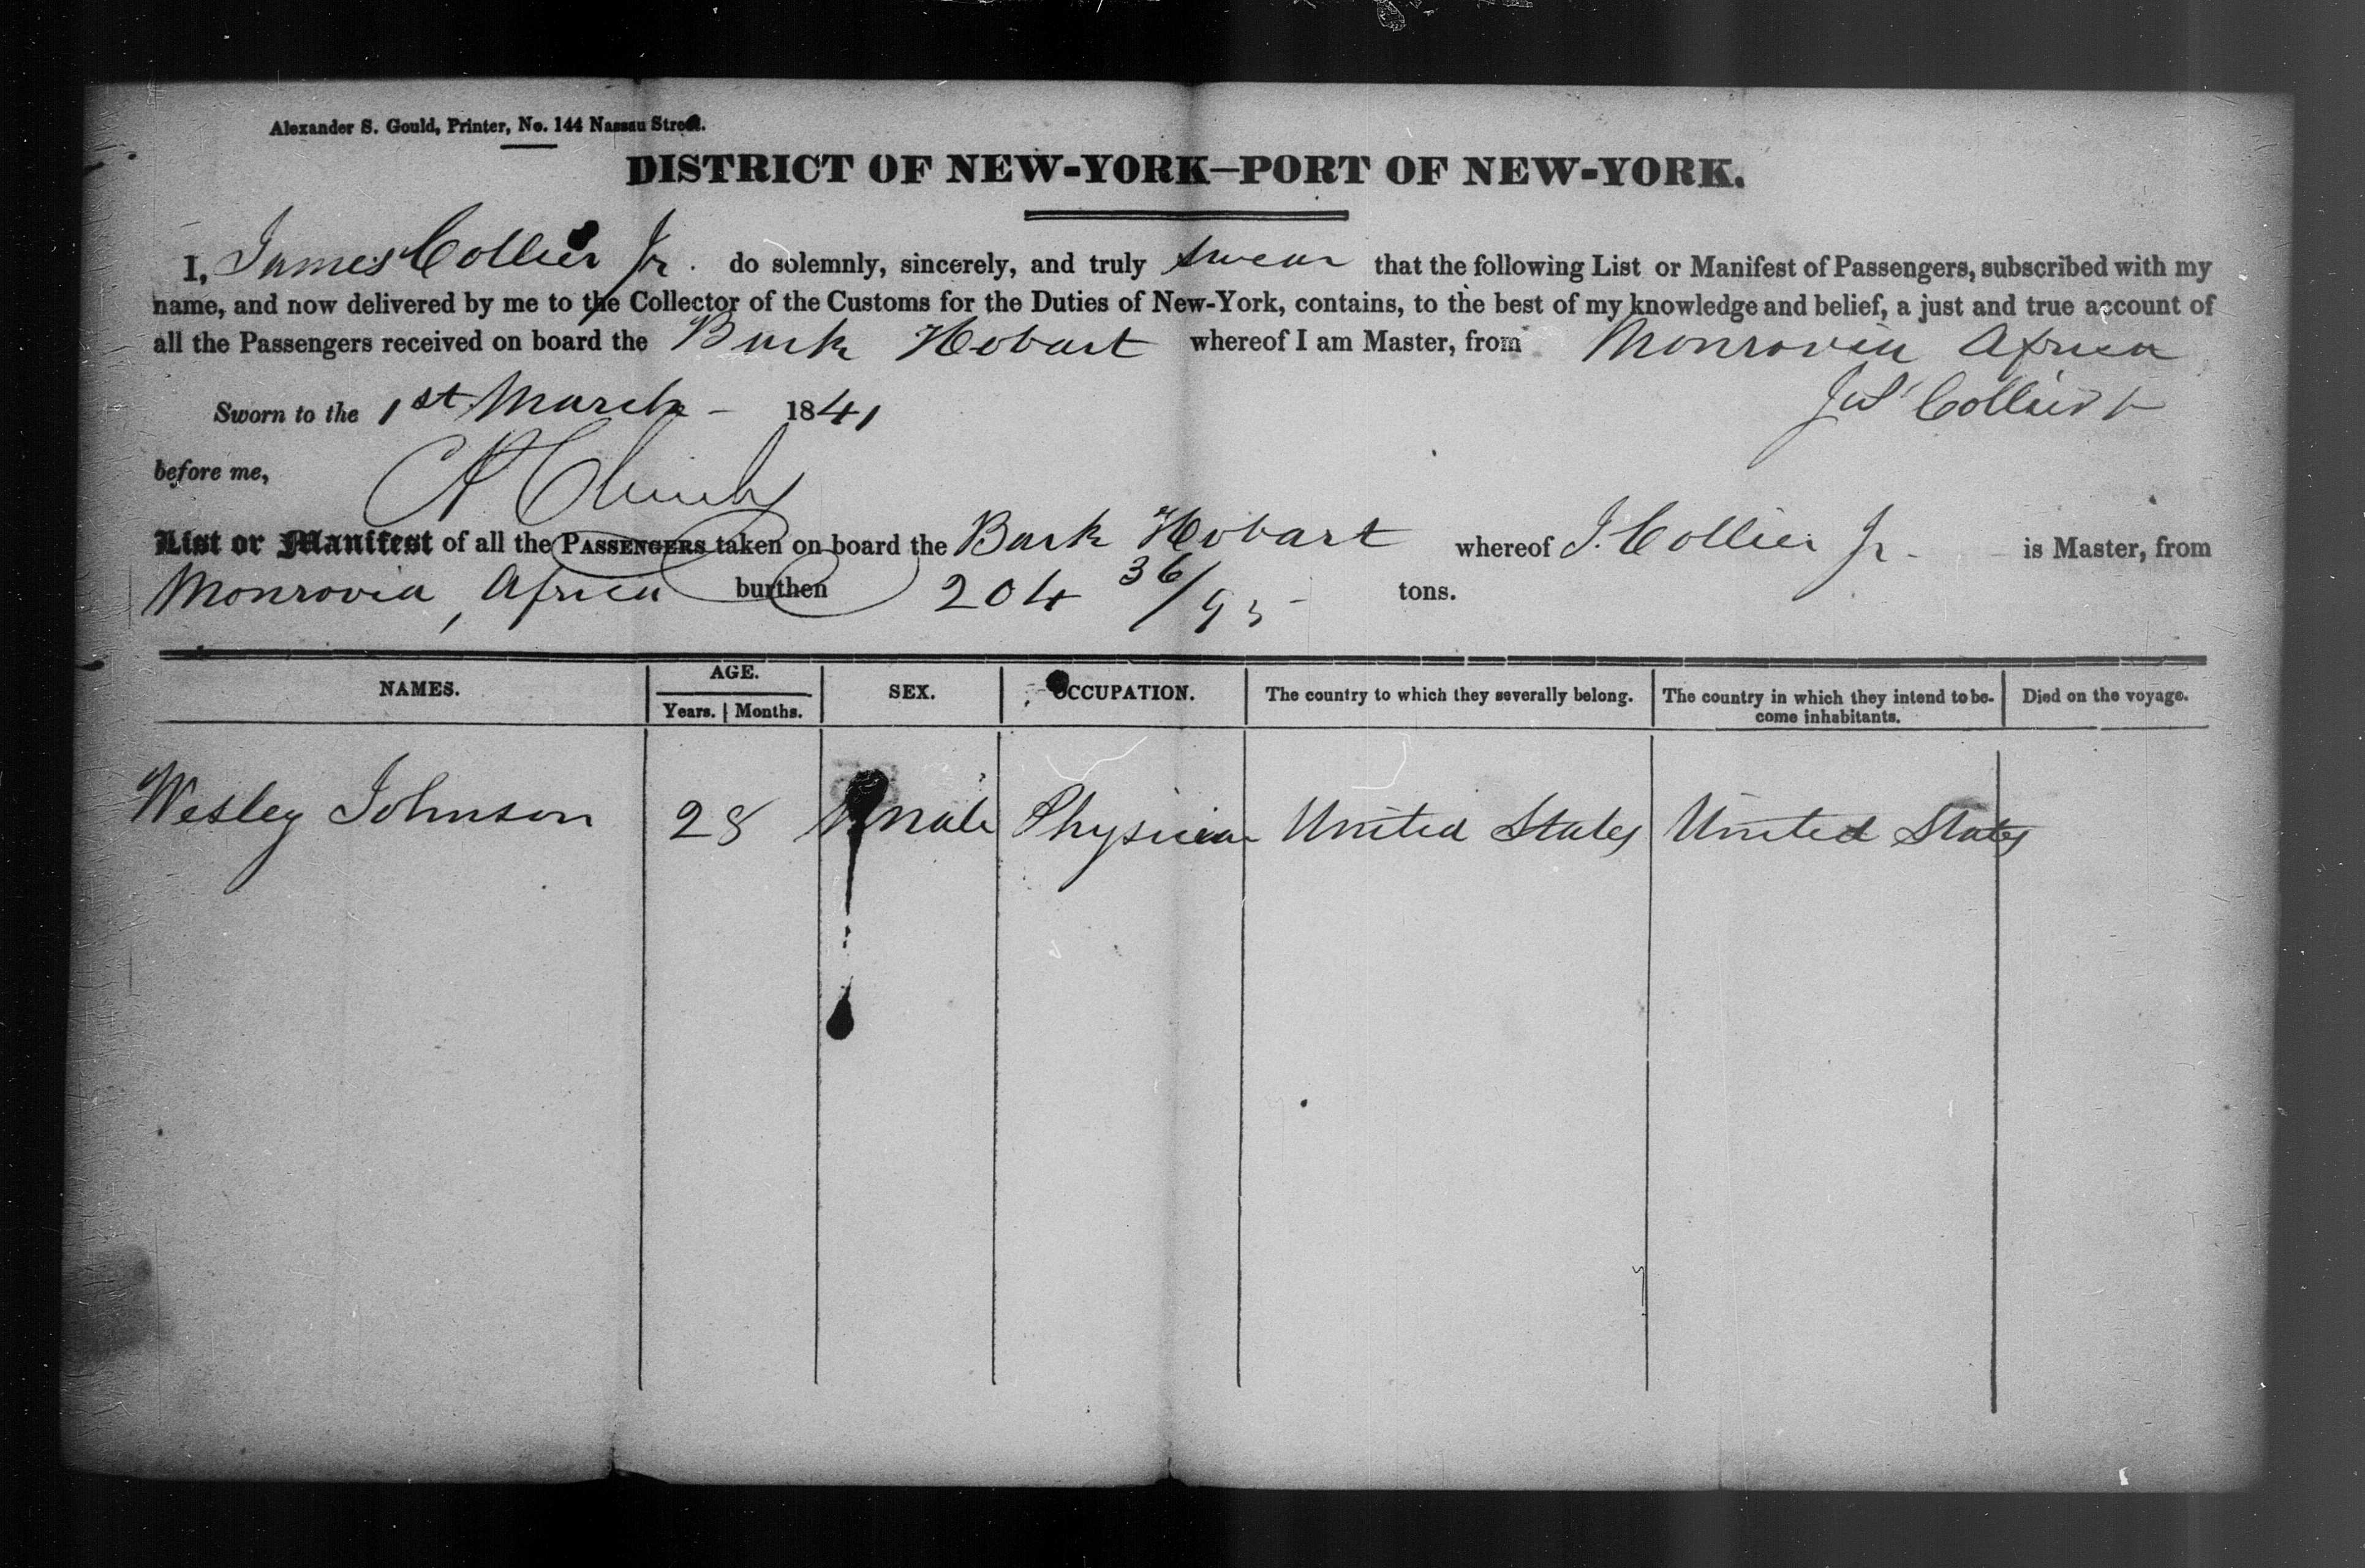 Alexander S. Gould, Printer, No. 144 Nassau Street.
DISTRICT OF NEW-YORK—PORT OF NEW-YORK.
I, James Collier Jr. do solemnly, sincerely, and truly swear that the following List or Manifest of Passengers, subscribed with my
name, and now delivered by me to the Collector of the Customs for the Duties of New-York, contains, to the best of my knowledge and belief, a just and true account of
all the Passengers received on board the Bark Hobart whereof I am Master, from Monrovia Africa
Sworn to the 1st March - 1841 Jas Collier Jr
before me,
List or Manifest of all the PASSENGERS taken on board the Bark Hobart whereof J. Collier Jr. is Master, from
Monrovia, Africa burthen 204 36/95 tons.
NAMES. AGE. SEX. OCCUPATION. The country to which they severally belong. The country in which they intend to be- Died on the voyage.
Years. Months. come inhabitants.
Wesley Johnson 28 male Physician United States United States